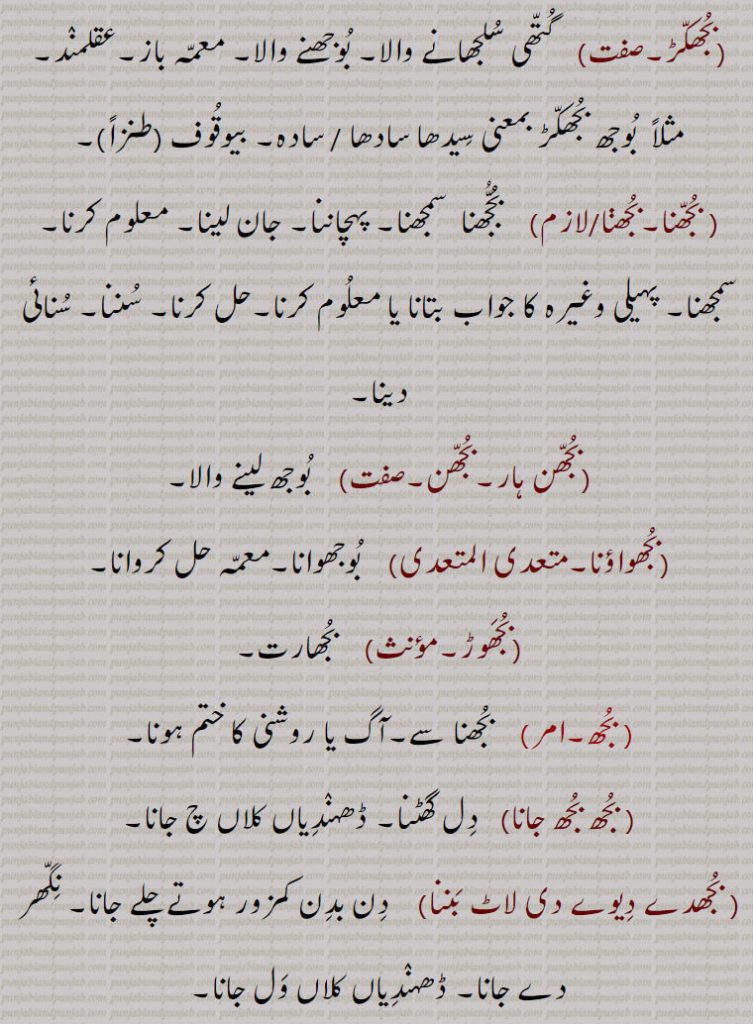 (بُجھکّڑ۔صفت) گُتّھی سُلجھانے والا۔ بُوجھنے والا۔ معمّہ باز۔عقلمنْد۔
مثلاً بُوجھ بُجھکّڑ بمعنی سِیدھا سادھا / سادہ۔ بیوقُوف (طنزاً)۔
(بُجّھنا۔بُجھنْا/لازم) بُجُّھنا سمجھنا۔ پہچاننا۔ جان لینا۔ معلوم کرنا۔
سمجھنا۔ پہیلی وغیرہ کا جواب بتانا یا معلُوم کرنا۔حل کرنا۔ سُننا۔ سُنائی
دینا۔
(بُجّھن ہار۔بُجّھن۔صفت) بُوجھ لینے والا۔
(بُجھواؤنا۔متعدی المتعدی) بُوجھوانا۔معمّہ حل کروانا۔
(بُجھَوڑ۔مؤنث) بُجھارت۔
(بُجھ۔امر) بُجھنا سے۔آگ یا روشنی کا ختم ہونا۔
(بُجھ بُجھ جانا) دِل گھٹنا۔ ڈھہنْدِیاں کلاں چ جانا۔
(بُجھدے دِیوے دی لاٹ بَننا) دِن بدِن کمزور ہوتے چلے جانا۔ نِگّھر
دے جانا۔ ڈھہنْدِیاں کلاں وَل جانا۔